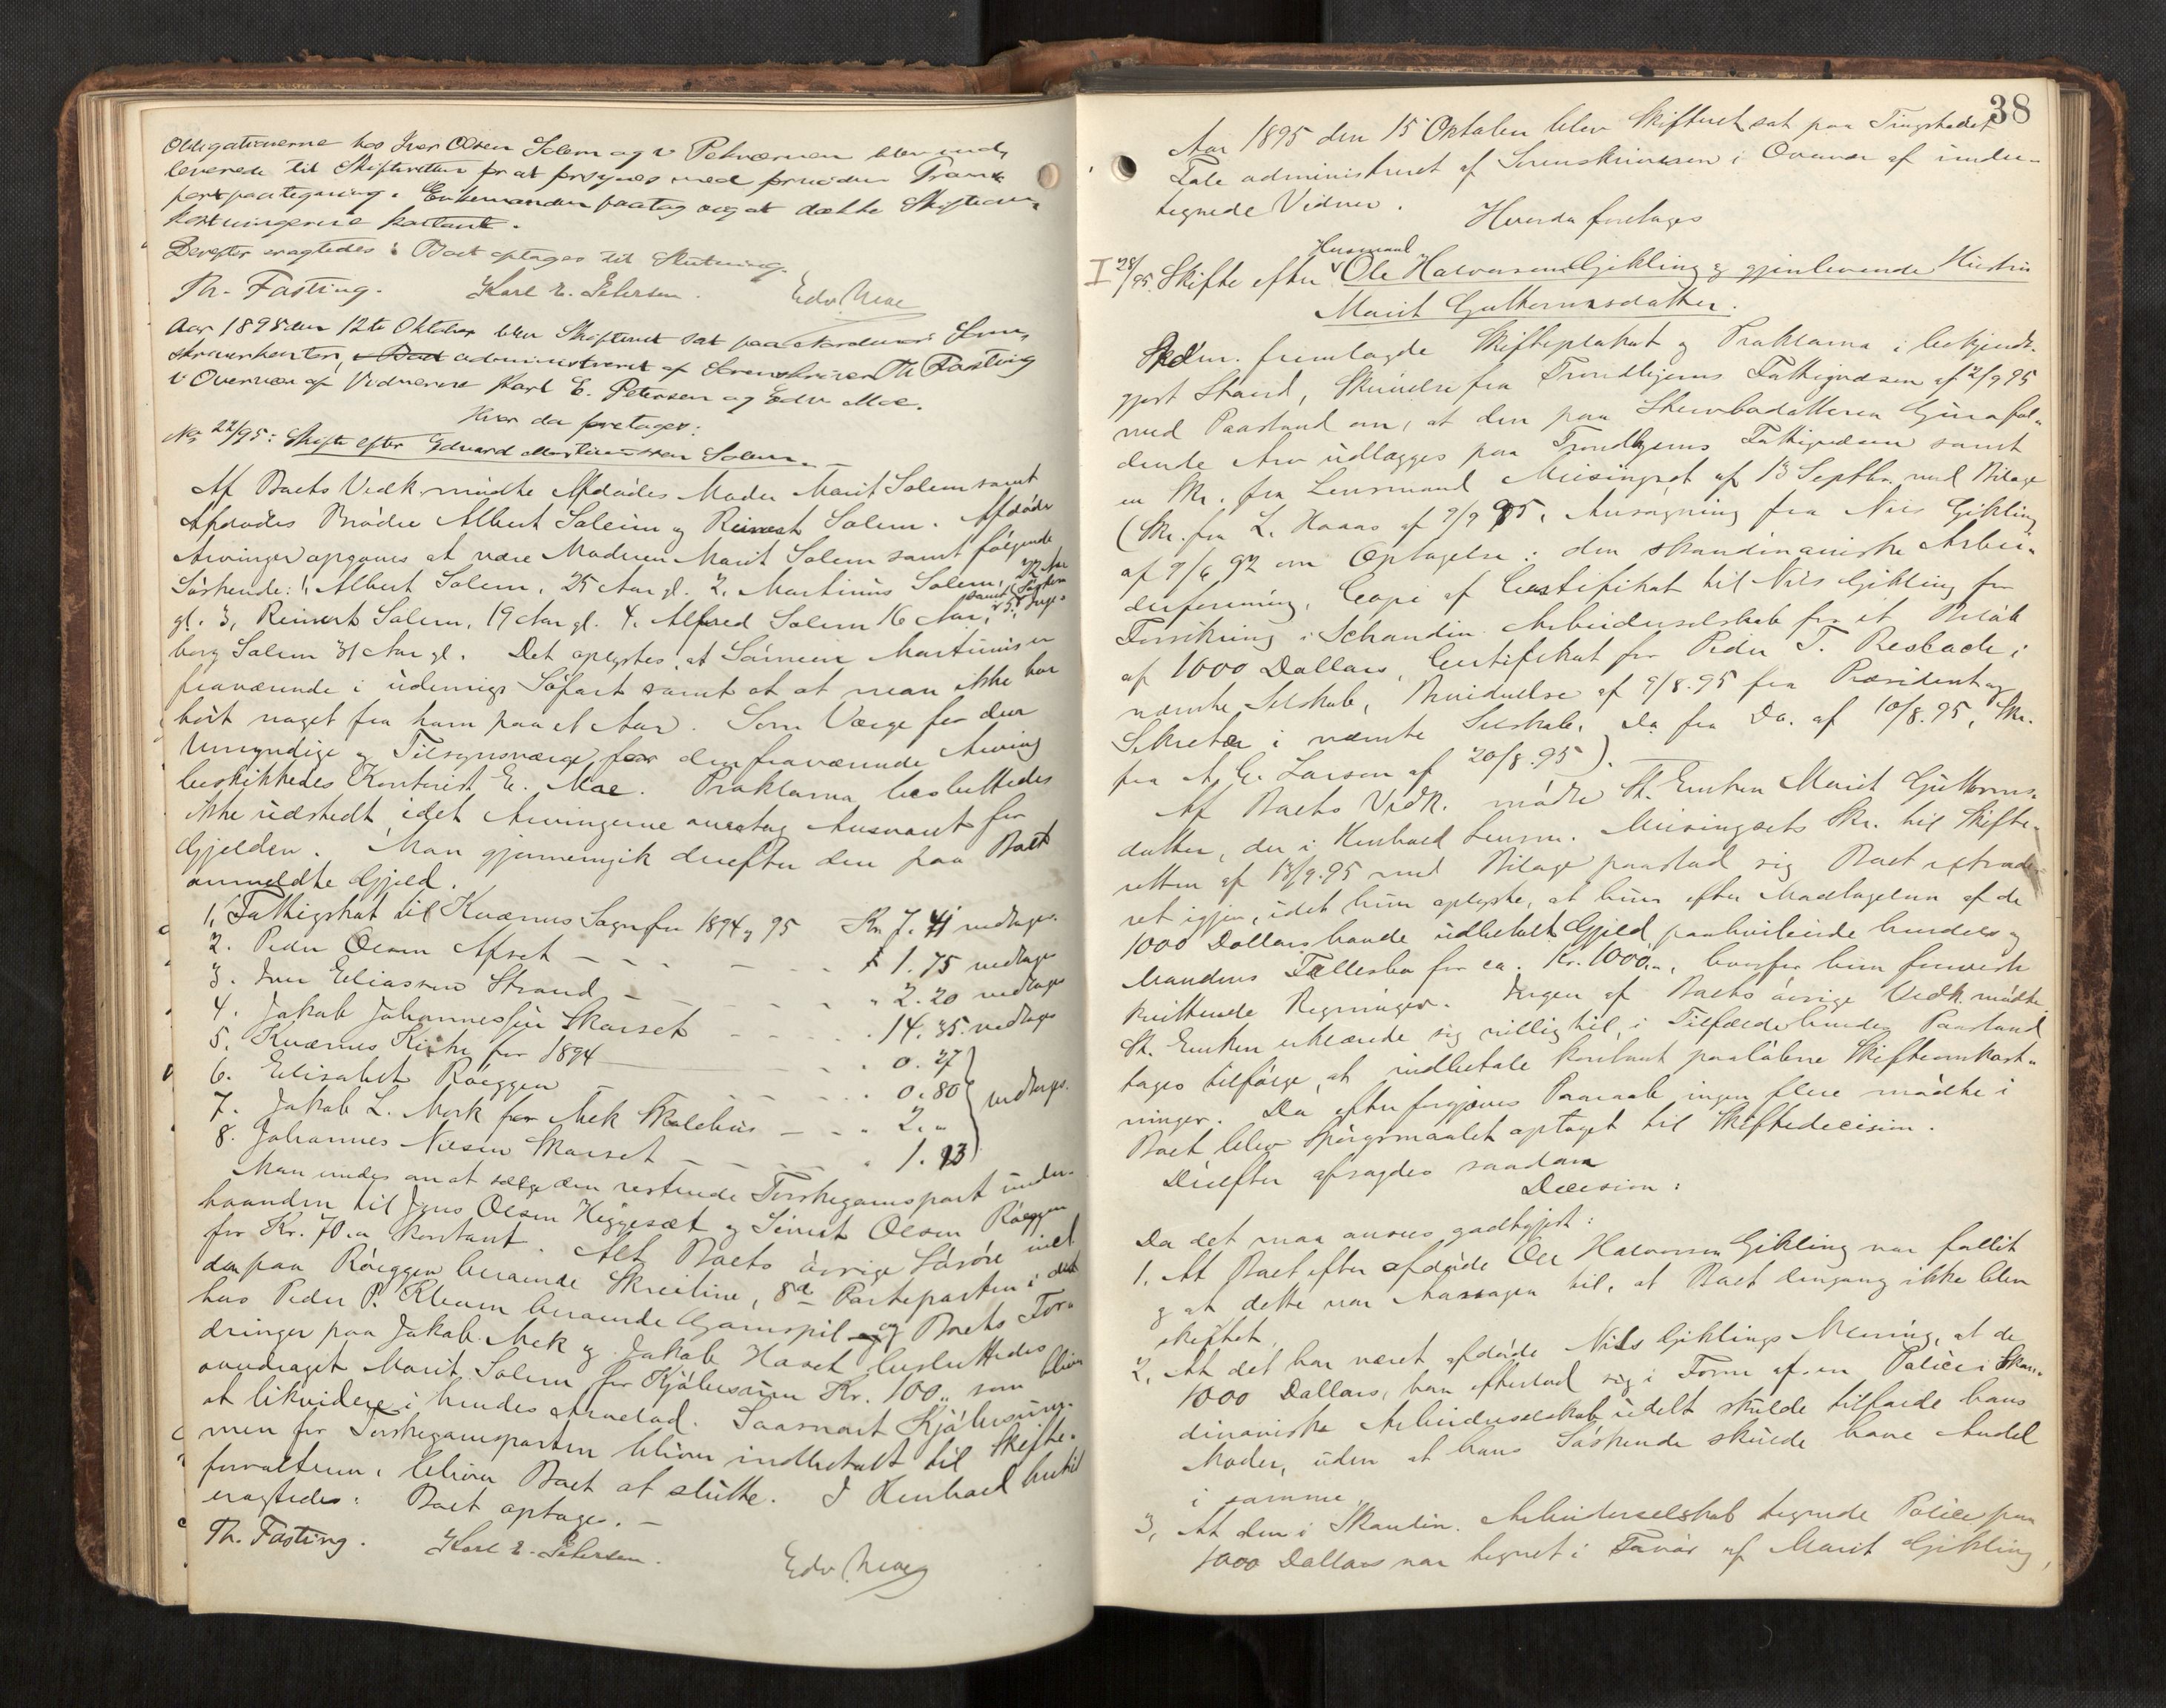 Obligationerne hos Iver Olsen Solem og v Petværnen blev ind-
leverede til Skifteretten for at forsynes med fornøden Trans-
portpaategning. Enkemanden paatog sig at dække Skifteom-
kostningerne kontant.
Derefter eragtedes: Boet optages til Slutning.
Th. Fasting. Karl E. Petersen. Edv Moe
Aar 1895 den 12te Oktober blev Skifteret sat paa Nordmøre Soren-
skriverkontor, administreret af Sorenskriver Th Fasting
i Overvær af Vidnerne Karl E. Petersen og Edv. Moe.
Hvor da foretages:
No 22/95: Skifte efter Edvard Martinussen Solem.
Af Boets Vedk. mødte Afdødes Moder Marit Solem samt
Afdødes Brødre Albert Solem og Reinert Solem. Afdødes
Arvinger opgaves at være Moderen Marit Solem samt følgende
Søskende: 1, Albert Solem, 25 Aar gl. 2, Martinus Solem, 22 Aar
gl. 3, Reinert Solem, 19 Aar gl. 4. Alfred Solem 16 Aar, samt Søsteren 5, Inge-
borg Solem 31 Aar gl. Det oplystes, at Sønnen Martinus er
fraværende i udenrigs Søfart samt at man ikke har
hørt noget fra ham paa et Aar. Som Værge for den
Umyndige og Tilsynsværge for den fraværende Arving
beskikkedes Kontorist E. Moe. Proklama besluttedes
ikke udstedt, idet Arvingerne overtog Ansvaret for
Gjelden. Man gjennemgik derefter den paa Boet
anmeldte Gjeld.
1, Fattigskat til Kværnes Sogn for 1894 og 95 Kr. 7.41 vedtages.
2. Peder Olsen Afset - - - - 1.75 vedtages
3. Iver Eliassen Strand - - - " 2.20 vedtages
4. Jakob Johannessen Skarset - - - 14.35 vedtages
5. Kværnes Kirke for 1894 - 0.27
6. Elisabet Røeggen - - - 0.80 vedtages.
7. Jakob L. Mork for Mek Skolehus - - " 2."
8. Johannes Nilsen Skarset - - - - 1.93
Man enedes om at sælge den resterende Torskegarnspart under-
haanden til Jens Olsen Heggesæt og Sivert Olsen Røeggen
for Kr. 70.00 kontant. Alt Boets øvrige Løsøre med
den paa Røeggen beroende Skreiline, 8de Parteparten i det
hos Peder P. Kleven beroende Garnspil og Boets For-
dringer paa Jakob Mek og Jakob Haset besluttedes
overdraget Marit Solem for Kjøbesum Kr. 100.00 som bliver
at likvidere i hendes Arvelod. Saasnart Kjøbesum-
men for Torskegarnsparten bliver indbetalt til Skifte-
forvalteren, bliver Boet at slutte. I Henhold hertil
eragtedes: Boet optages. -
Th. Fasting. Karl E. Petersen. Edv. Moe
38
Aar 1895 den 15 Oktober blev Skifteret sat paa Tingstedet
Tøle administreret af Sorenskriveren i Overvær af under-
tegnede Vidner.
Hvorda foretages
I 28/95. Skifte efter Husmand Ole Halvorsen Gikling og gjenlevende Hustru
Marit Guttormsdatter.
Skdm. fremlagde Skifteplakat og Proklama i bekjendt-
gjort Stand, Skrivelse fra Trondhjems Fattigvæsen af 2/9 95
med Paastand om, at den paa Stenbodatteren Gina fal-
dende Arv udlægges paa Trondhjems Fattigvæsen samt
en Skr. fra Lensmand Meisingset af 13 Septbr. med Bilage
(Skr. fra L. Haaas af 9/9 95, Ansøgning fra Nils Gikling
af 9/6 92 om Optagelse i den skandinaviske Arbei-
derforening, Copi af Certifikat til Nils Gikling for
Forsikring i Skandin. Arbeiderselskab for et Beløb
af 1000 Dollars, Certifikat for Peder T. Resbach i
nævnte Selskab, Bevidnelse af 9/8.95 fra Præsident og
Sekretær i nævnte Selskab. Do fra Do. af 10/8.95, Skr.
fra A. G. Larson af 20/8.95).
Af Boets Vedk. mødte St. Enken Marit Guttorms-
datter, der i Henhold Lensm. Meisingsets Skr. til Skifte-
retten af 13/9.95 med Bilage paastod sig Boet extrade-
ret igjen, idet hun oplyste, at hun efter Modtagelsen af de
1000 Dollars havde udbetalt Gjeld paahvilende hendes og
Mandens Fællesbo for ca. Kr. 1000.00, hvorfor hun foreviste
kvitterede Regninger. Ingen af Boets øvrige Vedk. mødte.
St. Enken erklærede sig villig til, i Tilfælde hendes Paastand
tages tilfølge, at indbetale kontant paaløbne Skifteomkost-
ninger. Da efter forgjæves Paaraab ingen flere mødte i
Boet blev Spørgsmaalet optaget til Skiftedecision.
Derefter afsagdes saadan
Decision:
Da det maa ansees godtgjort:
1, At Boet efter afdøde Ole Halvorsen Gikling var fallit
og at dette var Aarsagen til, at Boet dengang ikke blev
skiftet.
2, At det har været afdøde Nils Giklings Mening, at de
1000 Dollars, han efterlod sig i Form af en Police i Skan-
dinaviske Arbeiderselskab udelt skulde tilfalde hans
Moder, uden at hans Søskende skulde have Andel
i samme.
3, At den i Skandin. Arbeiderselskab tegnede Police paa
1000 Dollars var tegnet i Favør af Marit Gikling,